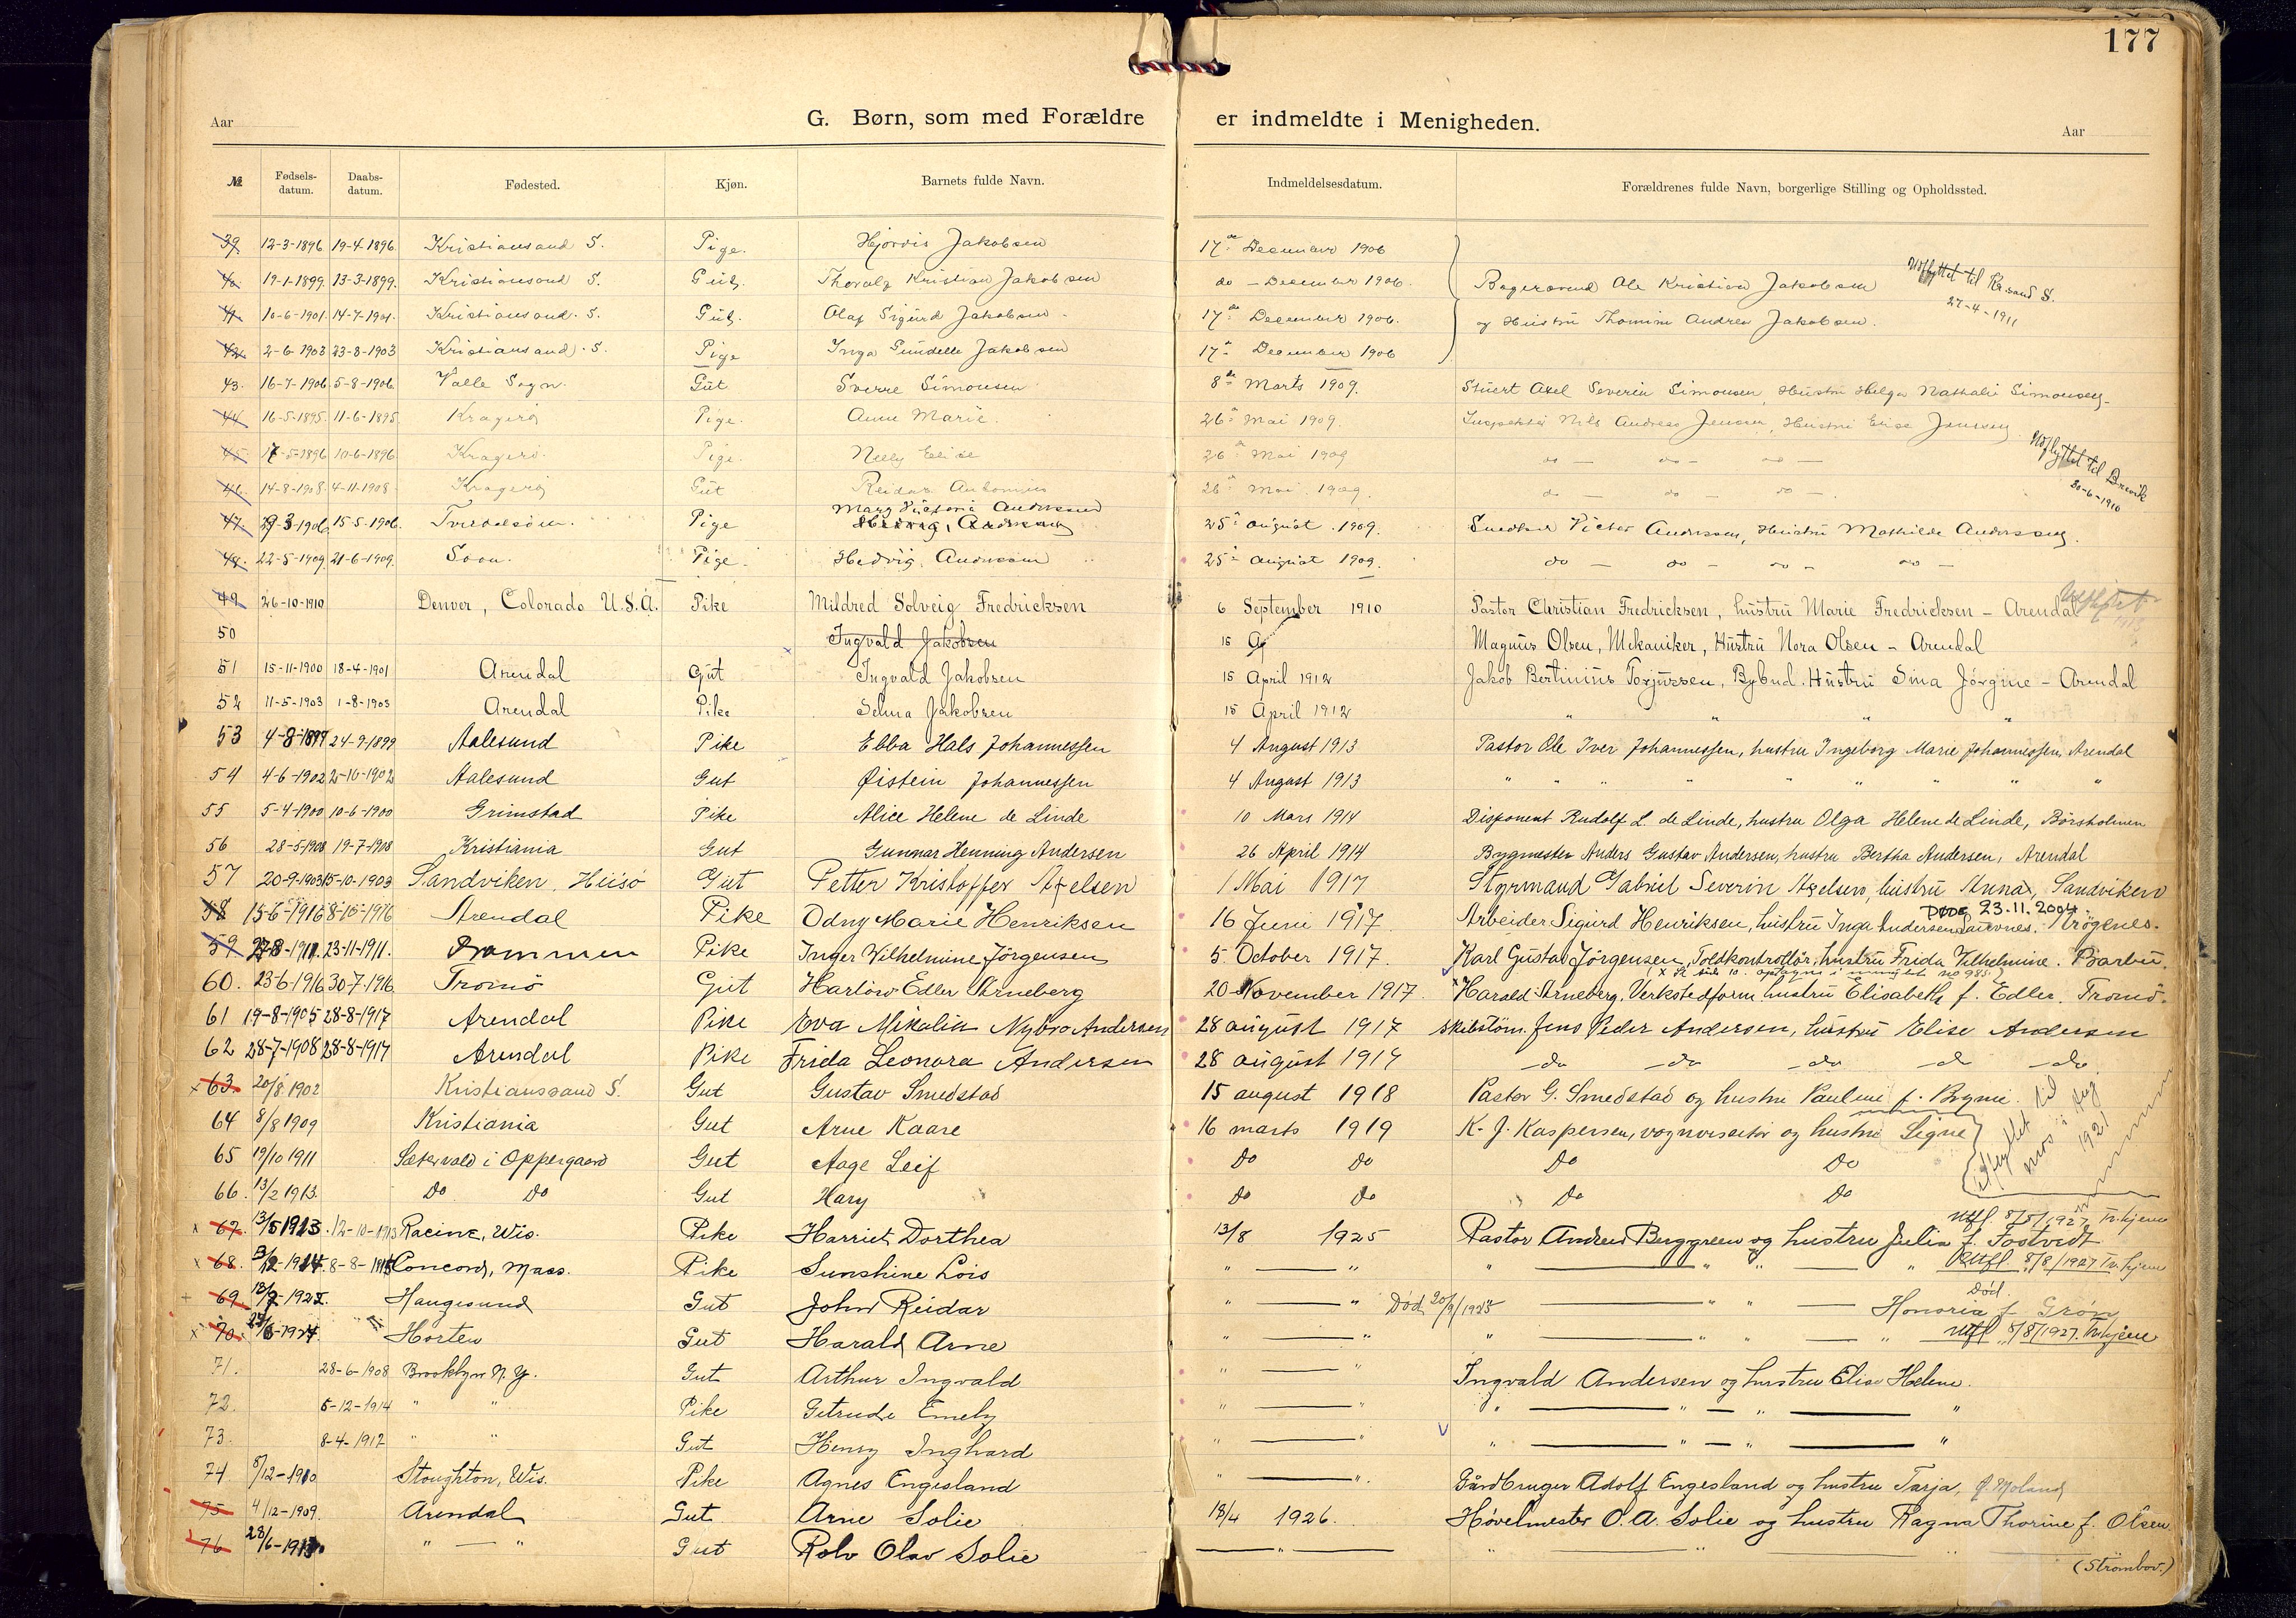 177
Aar
G. Børn, som med Forældre er indmeldte i Menigheden.
Aar
№ Fødselsdatum. Daabsdatum. Fødested. Kjøn. Barnets fulde Navn. Indmeldelsesdatum. Forældrenes fulde Navn, borgerlige Stilling og Opholdssted.
39. 12-3-1896 19-4-1896. Kristiansand S. Pige. Hjørdis Jakobsen 17de December 1906
40. 19-1-1899. 13-3-1899. Kristiansand S. Gut. Kristian Jakobsen do - December 1906. Ole Kristian Jakobsen Udflyttet til Kr.sand S. 27-4-1911
41. 10-6-1901. 14-7-1901. Kristiansand. S. Gut. Olaf Sigurd Jakobsen. 17de December 1906. og Hustru Andrea Jakobsen.
42. 2-6-1903 23-8-1903 Kristiansand. S. Pige Inga Jakobsen 17de December 1906
43. 16-7-1906. 5-8-1906. Valle Sogn. Gut Sverre Simonsen 8de Marts 1909. Stuert Axel Severin Simonsen, Hustru Helga Nathalie Simonsen
44. 16-5-1895. 11-6-1895. Kragerø Pige. Anne Marie. 26de Mai 1909. Nils Andreas Jensen, Hustru Elise Jensen
45. 17-5-1896 10-6-1896. Kragerø. Pige. Nelly Elise 26de Mai 1909 do - do - do - Udflyttet til Brevik 20-6-1910
46. 14-8-1908. 4-11-1908 Kragerø Gut Reidar Antonius 26de Mai. 1909. do - do - do -
47. 29-3-1906. 15-5-1906. Tvedestrand. Pige Mary Victoria Andersen 25de August. 1909. Victor Andersen, Hustru Mathilde Andersen.
48. 22-5-1909. 21-6-1909. Soon. Pige. Hedvig. Andersen 25de August 1909. do - do - do - do -
49 26-10-1910 Denver, Colorado U.S.A. Pike Mildred Solveig Fredricksen 6 September 1910 Pastor Christian Fredricksen, hustru Marie Fredricksen - Arendal
50 Ingvald Jakobsen 15 Magnus Olsen, Mekaniker, Hustru Nora Olsen - Arendal
51 15-11-1900 18-4-1901 Arendal Gut Ingvald Jakobsen 15 April 1912 Jakob Bertinius Torjussen, Bybud. Hustru Sina Jørgine - Arendal
52 11-5-1903 1-8-1903 Arendal Pike Selma Jakobsen 15 April 1912 " " " "
53 4-8-1899 24-9-1899 Aalesund Pike Ebba Hals Johannessen 4 August 1913 Pastor Ole Iver Johannessen, hustru Ingeborg Marie Johannessen, Arendal
54 4-6-1902 25-10-1902 Aalesund Gut Øistein Johannessen 4 August 1913 " " " " " " " "
55 5-4-1900 10-6-1900 Grimstad Pike Alice Helene de Linde 10 Mars 1914 Disponent Rudolf L. de Linde, hustru Olga Helene de Linde, Børsholmen
56 28-5-1908 19-7-1908 Kristiania Gut Gunnar Henning Andersen 26 April 1914 Bygmester Anders Gustav Andersen, hustru Bertha Andersen, Arendal
57 20-9-1903 15-10-1903 Sandviken, Hisö Gut Petter Kristoffer Axelsen 1 Mai 1917 Styrmand Gabriel Severin Axelsen, hustru Anna, Sandviken
58 15-6-1916 8-10-1916 Arendal Pike Odny Marie Henriksen 16 Juni 1917 Arbeider Sigurd Henriksen, hustru Inga Andersen DØDE 23.11.2004
59 27-8-1911. 23-11-1911. Drammen Pike Inger Vilhelmine Jörgensen 5. October 1917. Karl Gustav Jörgensen, Toldkontrollör, hustru Frida Vilhelmine. Barbu.
60. 23-6-1916 30-7-1916 Tromö Gut Harlow Edler Arneberg 20 November 1917. Harald Arneberg, Verkstedform. hustru Elisabeth f. Edler. Tromö.
61 19-8-1905 28-8-1917 Arendal Pike Eva Mikalia Nybro Andersen 28 august 1917 Skibstöm. Jens Peder Andersen, hustru Elise Andersen
62 28-7-1908 28-8-1917 Arendal Pike Frida Leonora Andersen 28 august 1917 - do - do - do - do - do
63 20/8 1902 Kristianssand S. Gut Gustav Smedstad 15 august 1918 Pastor G. Smedstad og hustru Pauline f. Bryne.
64 8/8 1909 Kristiania Gut Arne Kaare 16 marts 1919 K. J. Kaspersen, og hustru Signe Utflyttet til Moss i Aug 1921
65 19/10 1911 Sætervold i Oppergaard Gut Aage Leif Do Do Do Do
66. 13/2 1913. Do Do Gut Hary Do Do Do Do
67. 13/5 1913. 12-10-1913 Racine, Wis. Pike Harriet Dorthea 13/8 1925 Pastor Andrew Berggreen og hustru Julia f. Tostvedt Utfl. 8/8/1927 Tr.hjem
68. 8-8-1915 Concord, Mass. Pike Sunshine Lois " " " " " " Utfl 8/8/1927 Tr.hjem
69. Haugesund Gut John Reidar " " Død 20/9/1925 " " Honoria f. Grøn Død.
70. Horten Gut Harald Arne " " " " " " Utfl 8/8/1927. Tr.hjem
71. 28-6-1908 Brooklyn N.Y. Gut Arthur Ingvald " " Ingvald Andersen og hustru Elise Helene.
72. 5-12-1914 " " Pike Getrude Emely " " " " " "
73. 8-4-1912 " " Gut Henry Inghard " " " " " "
74 8/12-1910 Stoughton, Wis. Pike Agnes Engesland " ". Gårdbruger Adolf Engesland og hustru Tarja, f. Moland
75 4/12-1909. Arendal Gut Arne Solie 18/4 1926. Høvelmester O. A. Solie og hustru Ragna Thorine f. Olsen
76 23/6-1913. " " Gut Rolv Olav Solie " " " "
(Strömbo.)